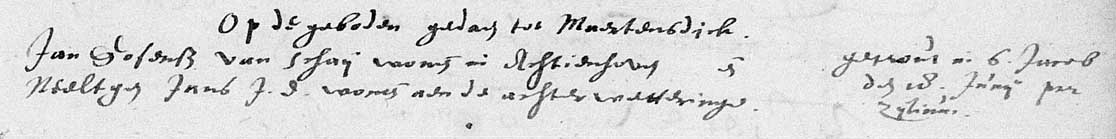 Op de geboden gedaen tot Maertensdijck.
Jan Goosensz van Schaij wonen in Achtienhoven en
Neeltgen Jans J. d. wonen aen de achterwetteringe.
getrout in S. Jacob
den 18. Junij per